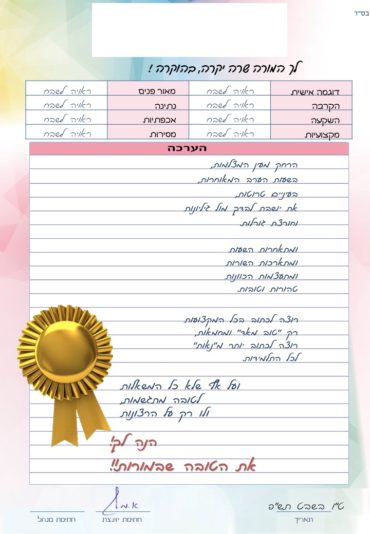 בס״ד
לך המורה שרה יקרה, בהוקרה !
דוגמה אישית ראויה לשבח מאור פנים ראויה לשבח
הקרבה ראויה לשבח נתינה ראויה לשבח
השקעה ראויה לשבח אכפתיות ראויה לשבח
מקצועיות ראויה לשבח מסירות ראויה לשבח
הערכה
הרחק מעין המצלמות,
בשעות הערב המאוחרות,
בעינים טרוטות,
את יושבת לבדך מול גליונות
וחורצת גורלות.
ומתאחרות השעות
ומתארכות השורות
ומתעצמות הכוונות
טהורות וטובות.
רוצה לכתוב בכל המקצועות
רק "טוב מאד" ומחמאות,
רוצה לכתוב יותר מ"נאות"
לכל התלמידות.
ועל אף שלא כל המשאלות
לטובה מתגשמות,
ולו רק על הרצונות
הנה לך!
את הטובה שבמורות!!
ט"ו בשבט תש"פ
תאריך
חתימת יועצת
חתימת מנהל